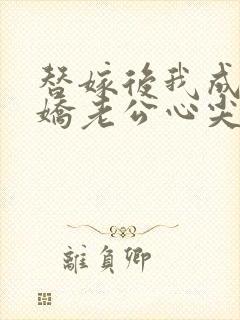 替嫁後我成
嬌老公心尖
離負卿